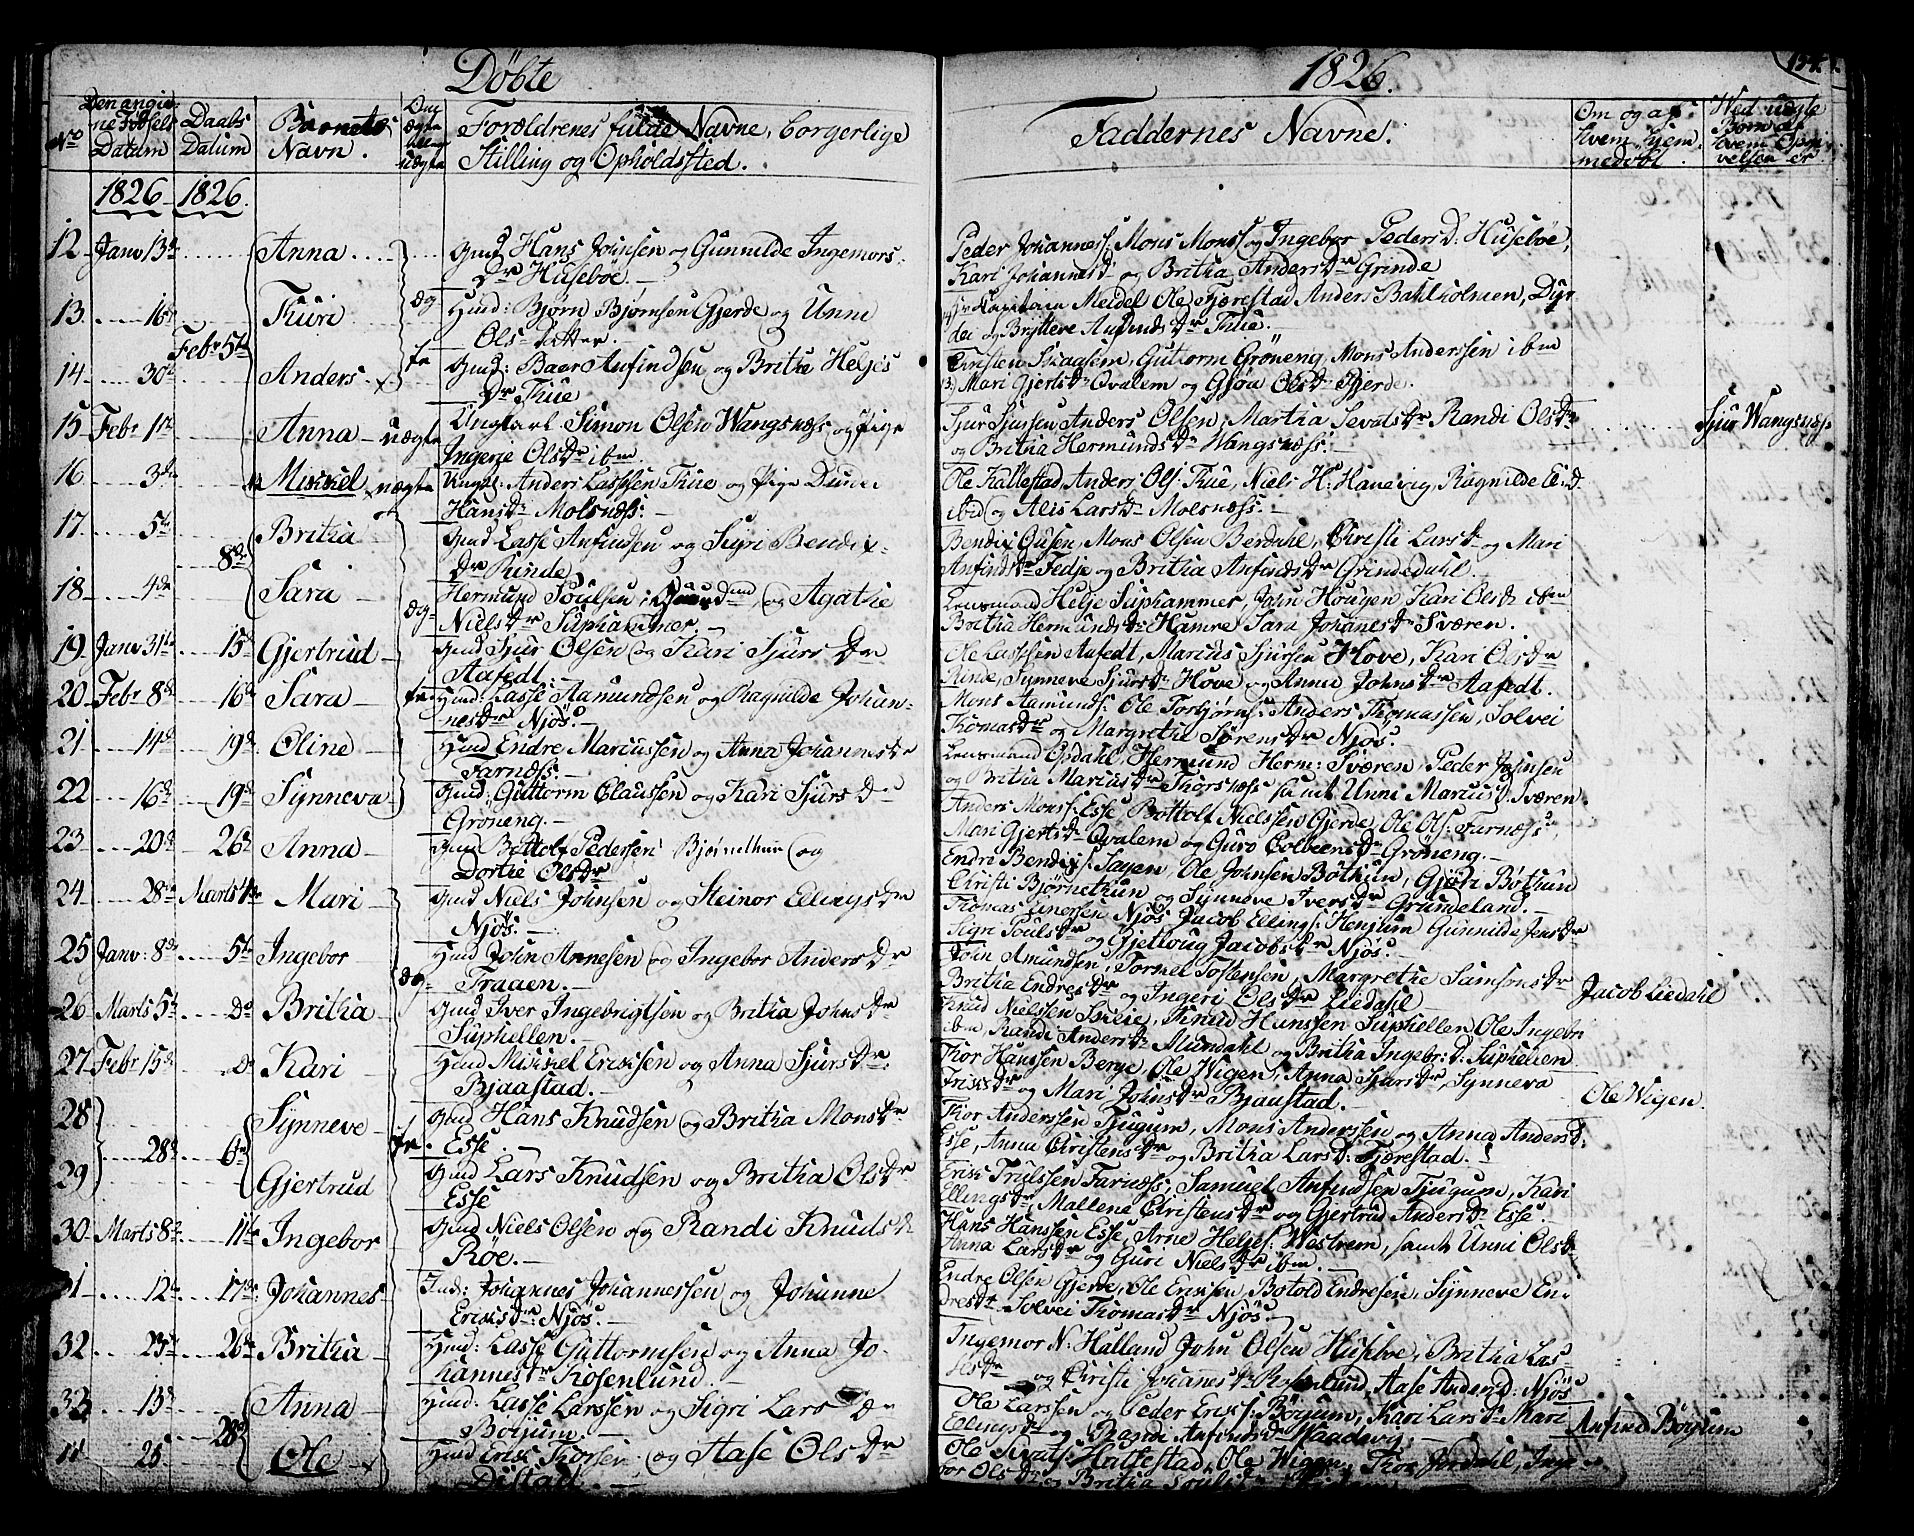 Döbte
1826.
154.
No
Den angiv-
ne Fødsels
Datum
Daabs
Datum
Barnets
Navn.
Om
ægte
eller
uægte
Forældrenes fulde Navne, borgerlige
Stilling og Opholdssted.
Faddernes Navne.
Om og af
hvem hjem-
medøbt.
Ved uægte
Børn af
hvem Opgi-
velsen er
1826 1826.
12 Janv 13de Anna Gmd Hans Johnsen og Gunnilde Ingemors
Dr Husebøe.
Peder Johanness: Mons Mons og Ingebor Pedersd. Husebøe,
Kari Johannesdr og Britha Andersdr Grinde
13 16de Thuri æg Hmd: Bjørn Bjørnsen Gjerde og Unni
Ols Datter
Kapitain Meidel Ole Fjærestad Anders Bahlholmen,
og Anfindsdr Thue.
14 30te Febr 5te Anders te Gmd: Baar Anfindsen og Britha Heljes
Dr Thue
Guttorm Gröneng, Mons Anderssen ibm
Mari Gjertsdr Qvalem og Gjøa Olsdr Gjerde.
15 Febr 1ste Anna uægte Ungkarl Simon Olsen Wangsnæss og Pige
Ingerie Olsdr ibm.
Sjur Sjursen Anders Olsen, Martha Sevalsdr Randi Olsdr
og Britha Hermundsdr Wangsnæss.
Sjur Wangsnæs
16 3de Mikkel uægte Ungk: Anders Lassesen Thue og Pige
Hansdr Molsnæss:
Ole Kallestad, Anders Ols: Thue, Niels H: Hanevig, Ragnilde E:d.
ibid og Alis Larsdr Molsnæss.
17 5te 8de Britha Gmd Lasse Anfindsen og Siri Bendix-
Dr Rinde
Bendix Mons Olsen Berdahl, Christi Larsdr og Mari
Anfindsdr Fedje og Britha Anfindsdr Grindedahl.
18 4de Sara æg- Hermund Poulsen og Agathe
Nielsdr Suphammer.
Lensmand Helje Suphammer, John Hougen, Kari Olsdr ibm
Britha Hermundsdr Hamre Sara Johanesdr Sværen.
19 Janv 31te 15de Gjertrud Gmd Sjur Olsen og Kari Sjurs Dr
Aafedt.
Ole Lassesen Aafedt, Marcus Sjursen Hove, Kari Olsdr
Rinde, Synneve Sjursdr Hove og Anna Johnsdr Aafedt.
20 Febr 8de 16de Sara te Hmd: Lasse Aamundsen og Ragnilde Johan-
nesdr Njøs.
Mons Aamunds: Ole Torbjørns: Anders Thomassen, Solvei
Thomasdr og Margrethe Sörensdr Njøs.
21 14de 19de Oline Hmd Endre Marcussen og Anna Johannesdr
Farnæss.
Lensmand Opdahl, Hermund Herm: Sværen, Peder Johnsen
og Britha Marcusdr Thorsnæs samt Unni Marcusd. Sværen
22 16de 19de Synneva Gmd: Guttorm Clausen og Kari Sjurs Dr
Gröneng.
Anders Mons: Esse, Bottolf Nielssen Gjerde, Ole Ols: Farnæss,
Mari Gjertsdr Qvalem og Guro Gröneng.
23 20de 26de Anna Gmd Bottolf Pedersen Bjørnethun og
Dortie Olsdr
Endre Bendix: Sagen, Ole Johnsen Böthun, Gjöri Böthun
Christi Bjørnethun og Synneve Iversdr Grundeland.
24 28de Marts 4de Mari Gmd Niels Johnsen og Steinor Ellings dr
Njøs.
Thomas Einersen Njøs Jacob Ellings: Henjum Gunnilde Jensdr
Sigri Poulsdr og Gjetloug Jacobsdr Njøs.
25 Janv: 8de 5te Ingebor æg- Hmd John Annesen og Ingebor Anders Dr
Fraaen.
John Amundsen, Tormol Tostensen, Margrethe Samsonsdr
Britha Endresdr og Ingeri Olsdr Liedahl
Jacob Liedahl
26 Marts 5te Do Britha Gmd Iver Ingebrigtsen og Britha Johnsdr
Suphellen.
Knud Nielssen Skeie, Knud Hanssen Suphellen Ole Ingebr
ibm, Randi Andersdr Mundahl og Britha Ingebr: d. Suphellen
27 Febr 15de Do Kari Hmd Mikkel Erikssen og Anna Sjurs Dr
Bjaastad.
Thor Hanssen Berge, Ole Wigen, Anna Sjursdr, Synneva
og Mari Johnsdr Bjaastad.
Ole Wigen.
28 Synneve te Gmd Hans Knudsen og Britha Monsdr
Esse.
Thor Anderssen Tjugum, Mons Anderssen og Anna Andersd:
Esse, Anna Christensdr og Britha Larsd: Fjærestad.
28de 6te
29 Gjertrud Gmd Lars Knudsen og Britha Olsdr
Esse
Erik Trulssen Farnæss, Samuel Anfindsen Tjugum, Kari
Ellingsdr, Mallene Christensdr og Gjertrud Andersdr Esse.
30 Marts 8de 11te Ingebor Gmd Niels Olsen og Randi Knudsdr
Röe.
Hans Hanssen Esse, Arne Heljes: Westrem, samt Unni Olsdr
Anna Larsdr og Guri Nielsdr ibm.
31 12te 17de Johannes Ind: Johannes Johannessen og Johanne
Eriksdr: Njøs.
Endre Olsen Gjerde, Ole Eriksen, Botold Endresen, Synneve En-
dresdr Solvei Thomasdr Njøs.
32 23de 26de Britha Hmd: Lasse Guttormsen og Anna Jo-
hannesdr Rösenlund.
Ingemor N: Halland John Olsen Husebøe, Britha Las-
sesdr og Christi Johanesdr Rosenlund, Aase Andersd: Njøs
33 13de 28de Anna Hmd: Lasse Larssen og Sigri Lars Dr
Böyum.
Ole Larssen og Peder Eriks: Böyum, Kari Larsdr Mari
Ellingsdr og Randi Anfindsdr
Anfind Böyum
25 Ole Hmd Erik Thorsen og Aase Olsdr
Distad.
Ole Hattestad, Ole Wigen, Thor Jordahl, Inge-
bor Olsdr og Britha